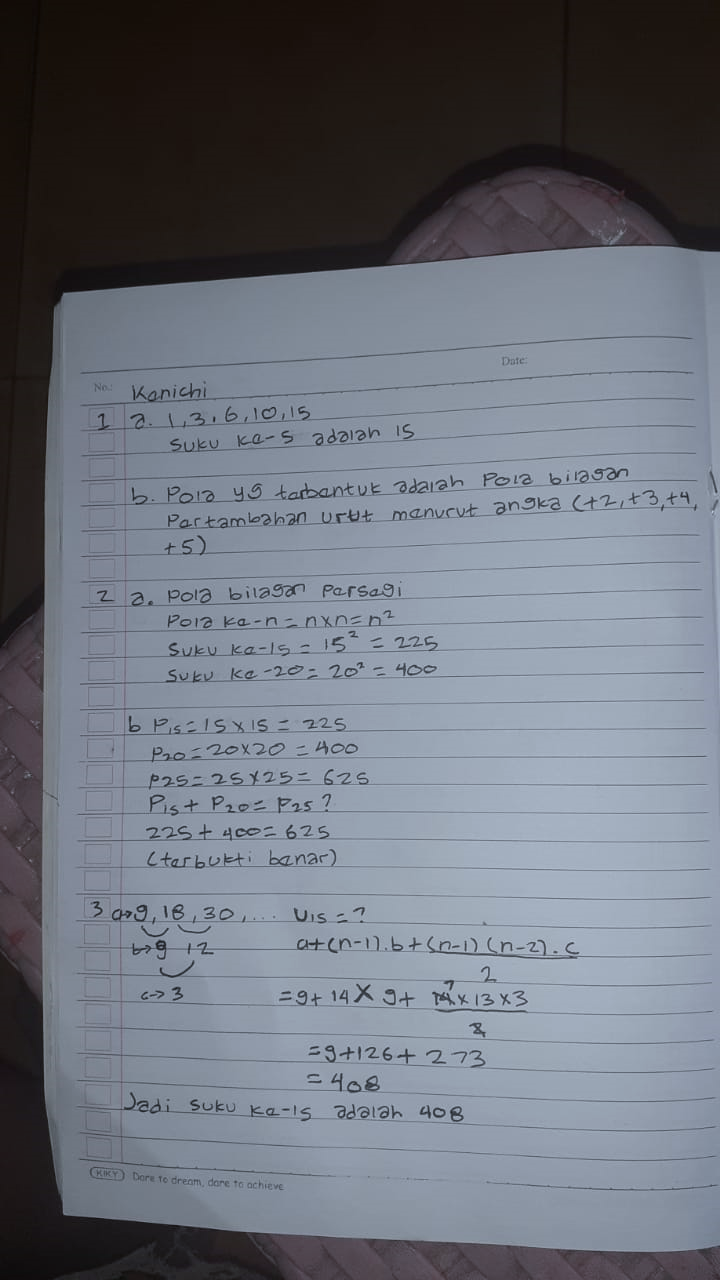 No.: Kanichi
Date:
1 a. 1, 3, 6, 10, 15
Suku ke-5 adalah 15
b. Pola yg terbentuk adalah Pola bilagan
Pertambahan urut menurut angka (+2, +3, +4,
+5)
2 a. Pola bilagan Persegi
Pola ke-n = n×n = n²
Suku ke-15 = 15² = 225
Suku ke-20 = 20² = 400
b P15 = 15 × 15 = 225
P20 = 20×20 = 400
P25 = 25×25 = 625
P15 + P20 = P25 ?
225 + 400 = 625
(terbukti benar)
3 a→9, 18, 30, ... U15 = ?
b→9 12 a+(n-1).b+(n-1)(n-2).c
2
c→3 = 9+ 14 × 9+ 14 7 × 13 × 3
2
= 9+126+273
= 408
Jadi suku ke-15 adalah 408
KIKY Dare to dream, dare to achieve